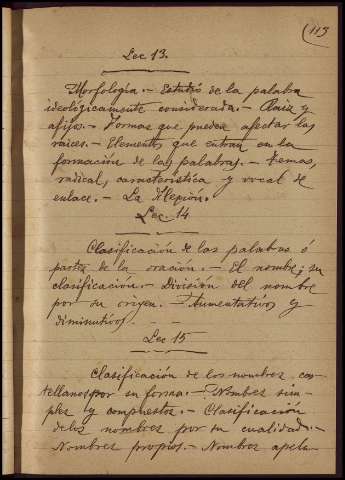 (113
Lec 13.
Morfología.- Estudio de la palabra
ideológicamente considerada.- Raiz y
afijos.- Formas que pueden afectar las
raices.- Elementos que entran en la
formación de las palabras.- Temas,
radical, característica y vocal de
enlace.- La Flexión.
Lec 14
Clasificación de las palabras ó
partes de la oración.- El nombre; su
clasificación.- División del nombre
por su origen.- Aumentativos y
diminutivos.
Lec 15
Clasificación de los nombres cas-
tellanos por su forma.- Nombres sim-
ples y compuestos.- Clasificación
de los nombres por su cualidad.-
Nombres propios.- Nombres apela-